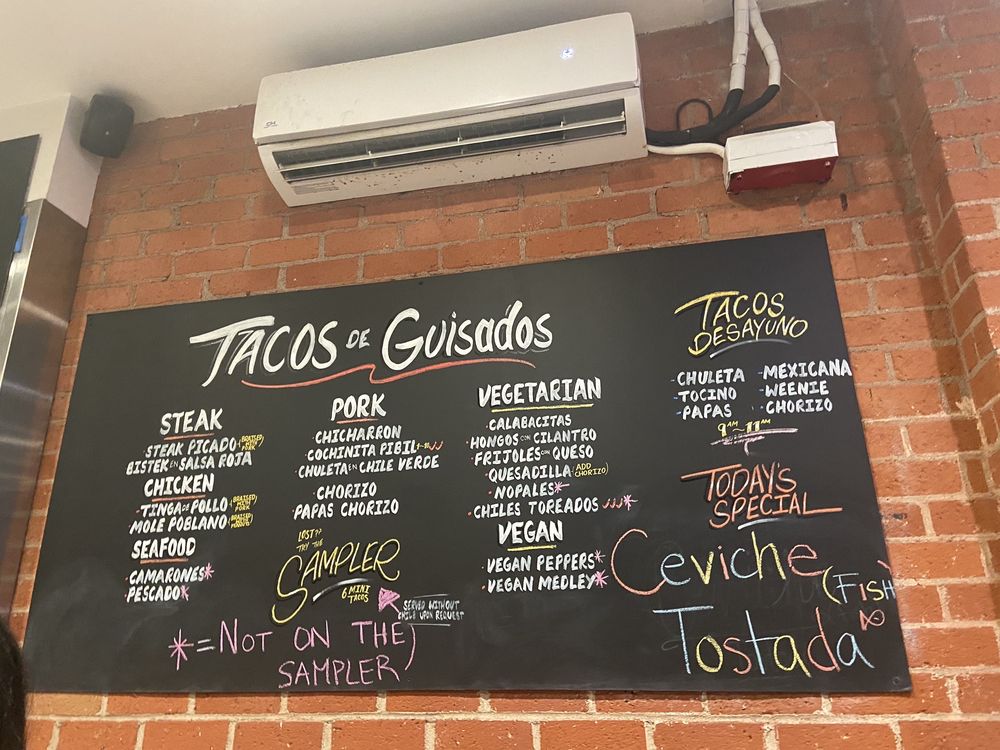 TACOS DE GUISADOS
STEAK
STEAK PICADO (BRAISED WITH PORK)
BISTEK EN SALSA ROJA
CHICKEN
TINGA DE POLLO (BRAISED WITH PORK)
MOLE POBLANO
SEAFOOD
CAMARONES*
PESCADO*
PORK
CHICHARRON
COCHINITA PIBIL
CHULETA EN CHILE VERDE
CHORIZO
PAPAS CHORIZO
LOST??
TRY THE
SAMPLER
6 MINI
TACOS
SERVED WITHOUT
CHILE UPON REQUEST
*=NOT ON THE
SAMPLER)
VEGETARIAN
CALABACITAS
HONGOS CON CILANTRO
FRIJOLES CON QUESO
QUESADILLA (ADD CHORIZO)
NOPALES*
CHILES TOREADOS *
VEGAN
VEGAN PEPPERS*
VEGAN MEDLEY*
TACOS
DESAYUNO
-CHULETA -MEXICANA
-TOCINO -WEENIE
-PAPAS -CHORIZO
9AM-11AM
TODAY'S
SPECIAL
Ceviche (FISH)
Tostada